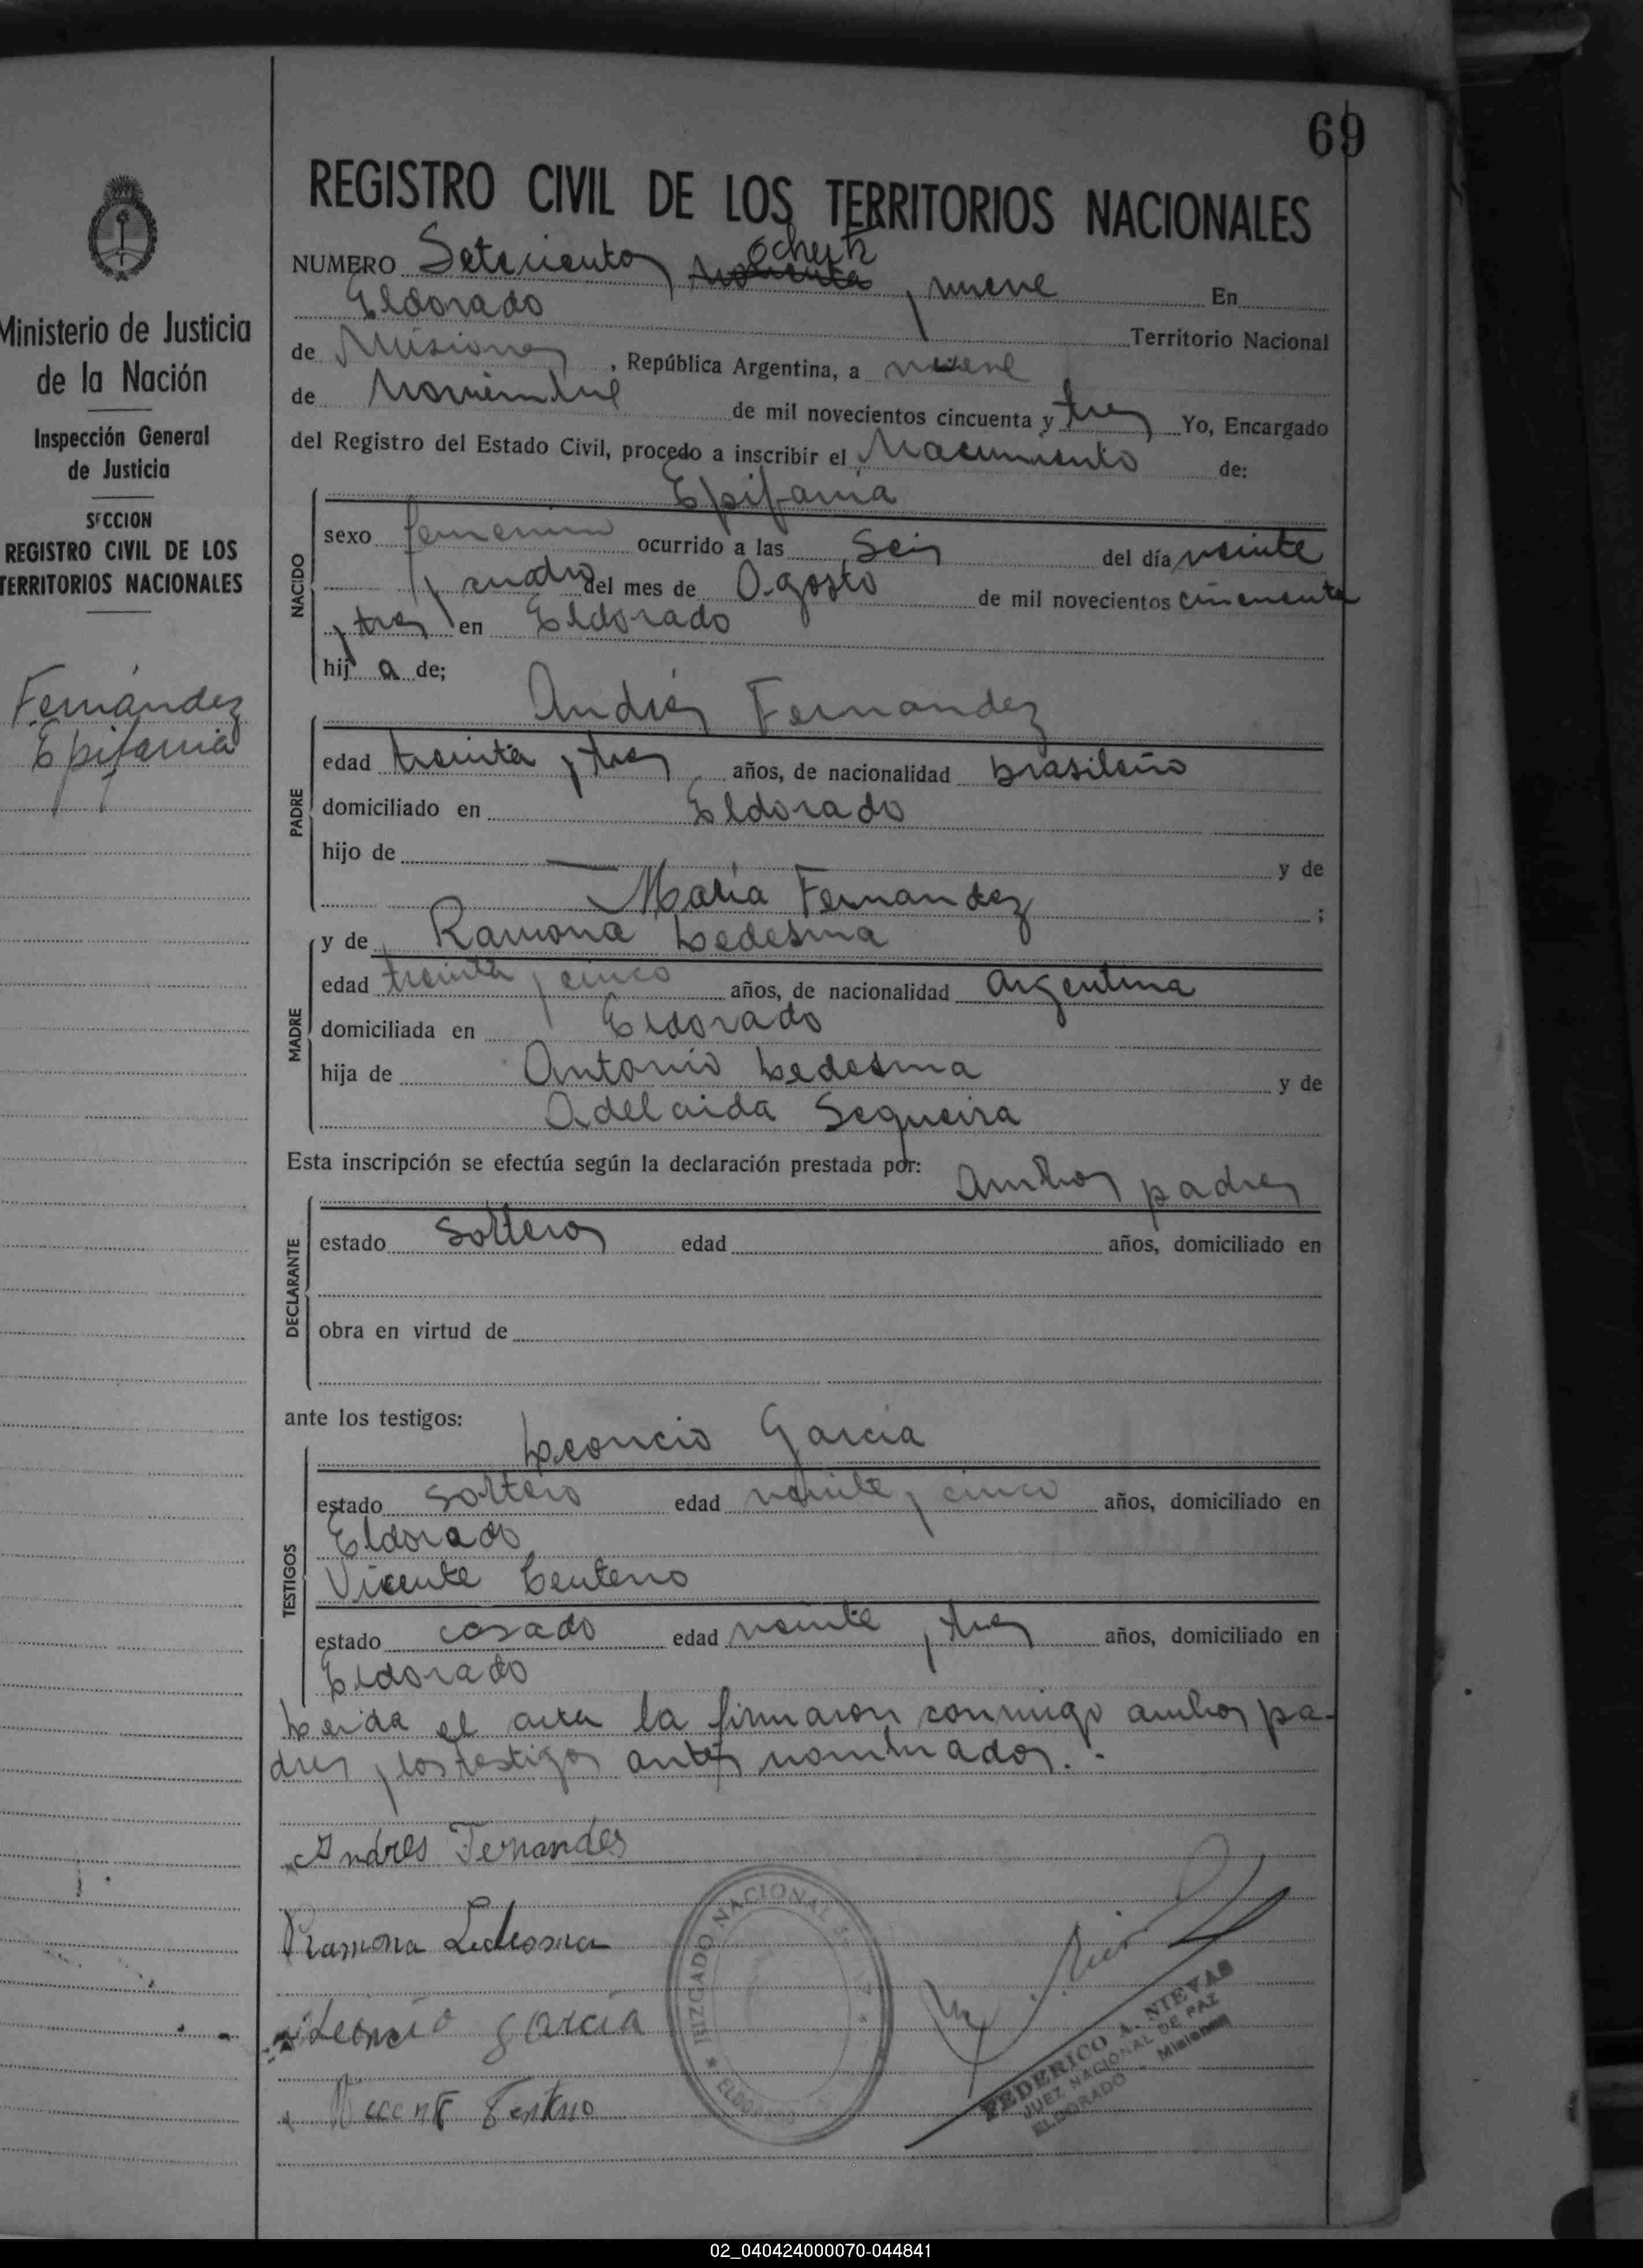 69
REGISTRO CIVIL DE LOS TERRITORIOS NACIONALES
ochenta
NUMERO Setecientos noventa y nueve En
Eldorado Territorio Nacional
de Misiones, República Argentina, a nueve
de Noviembre de mil novecientos cincuenta y tres Yo, Encargado
del Registro del Estado Civil, procedo a inscribir el Nacimiento de:
Epifania
sexo femenino ocurrido a las Seis del día veinte
y cuatro del mes de Agosto de mil novecientos cincuenta
y tres en Eldorado
hij a de;
NACIDO
Andrés Fernandez
edad treinta y tres años, de nacionalidad brasileño
domiciliado en Eldorado
hijo de — y de
María Fernandez ;
PADRE
y de Ramona Ledesma
edad treinta y cinco años, de nacionalidad argentina
domiciliada en Eldorado
hija de Antonio Ledesma y de
Adelaida Sequeira
MADRE
Esta inscripción se efectúa según la declaración prestada por: ambos padres
estado solteros edad años, domiciliado en
obra en virtud de
DECLARANTE
ante los testigos:
Leoncio García
estado soltero edad veinte y cinco años, domiciliado en
Eldorado
Vicente Centeno
estado casado edad veinte y tres años, domiciliado en
Eldorado
TESTIGOS
Leida el acta la firmaron conmigo ambos pa-
dres y los testigos antes nombrados.
Andres Fernandes
Ramona Ledesma
Leoncio García
JUZGADO NACIONAL
ELDORADO
FEDERICO A. NIEVAS
JUEZ NACIONAL DE PAZ
ELDORADO - Misiones
Ministerio de Justicia
de la Nación
Inspección General
de Justicia
SECCION
REGISTRO CIVIL DE LOS
TERRITORIOS NACIONALES
Fernández
Epifania
02_040424000070-044841